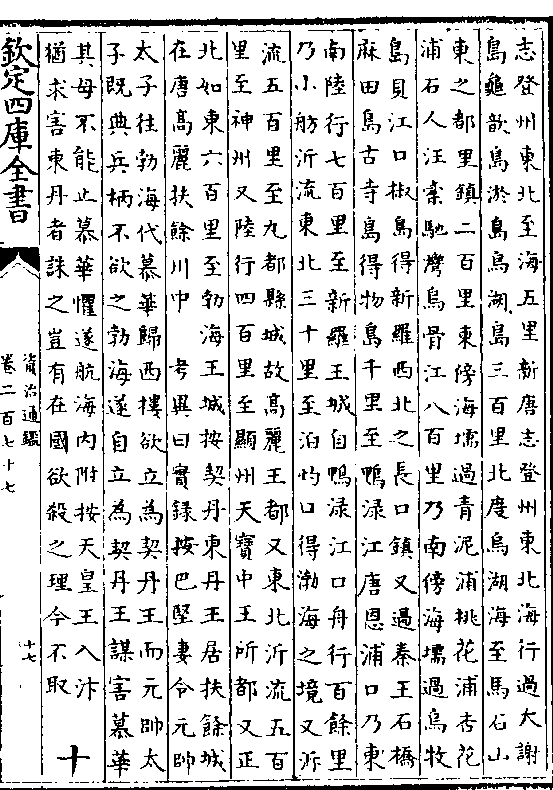 志登州東北至海五里新唐志登州東北海行過大謝
島龜歆島淤島烏湖島三百里北度烏湖海至馬石山
東之都里鎮二百里東傍海壖過青泥浦桃花浦杏花
浦石人汪槖馳灣烏骨江八百里乃南傍海壖過烏牧
島貝江口椒島得新羅西北之長口鎮又過秦王石橋
麻田島古寺島得物島千里至鴨淥江唐恩浦口乃東
南陸行七百里至新羅王城自鴨淥江口舟行百餘里
乃小舫泝流東北三十里至泊灼口得渤海之境又泝
流五百里至九都縣城故高麗王都又東北泝流五百
里至神州又陸行四百里至顯州天寶中王所都又正
北如東六百里至勃海王城按契丹東丹王居扶餘城
在唐高麗扶餘川中 考異曰實錄按巴堅妻令元帥
太子往勃海代慕華歸西樓欲立為契丹王而元帥太
子既典兵柄不欲之勃海遂自立為契丹王謀害慕華
其母不能止慕華懼遂航海内附按天皇王入汴
猶求害東丹者誅之豈有在國欲殺之理今不取
十
欽定四庫全書
資治通鑑
卷二百七十七
十七